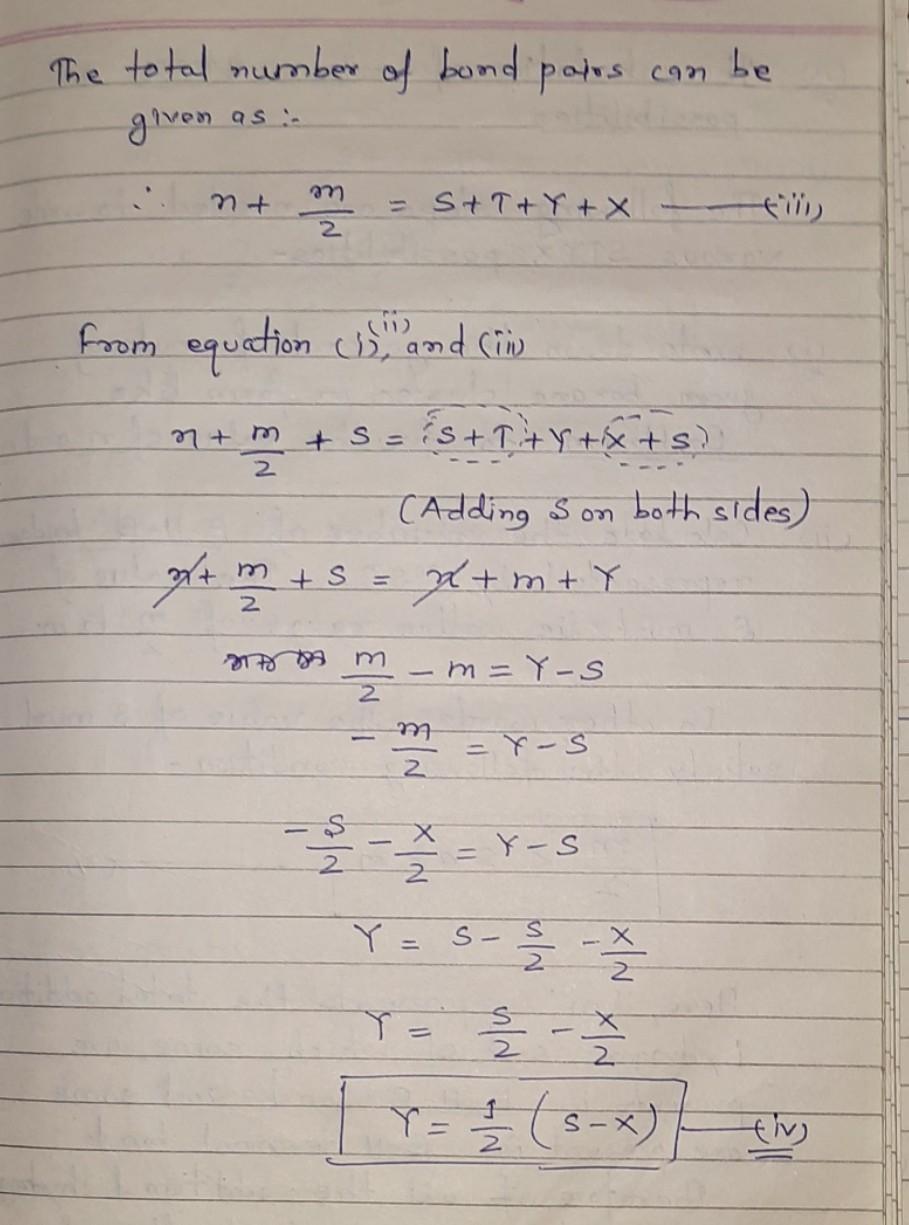 The total number of bond pairs can be
given as :-
∴ n + m/2 = S + T + Y + X —— (iii)
From equation (i), (ii) and (iii)
n + m/2 + S = (S + T) + Y + (X + S)
(Adding S on both sides)
n + m/2 + S = n + m + Y
m/2 - m = Y - S
- m/2 = Y - S
- S/2 - X/2 = Y - S
Y = S - S/2 - X/2
Y = S/2 - X/2
Y = 1/2 (S - X) —— (iv)